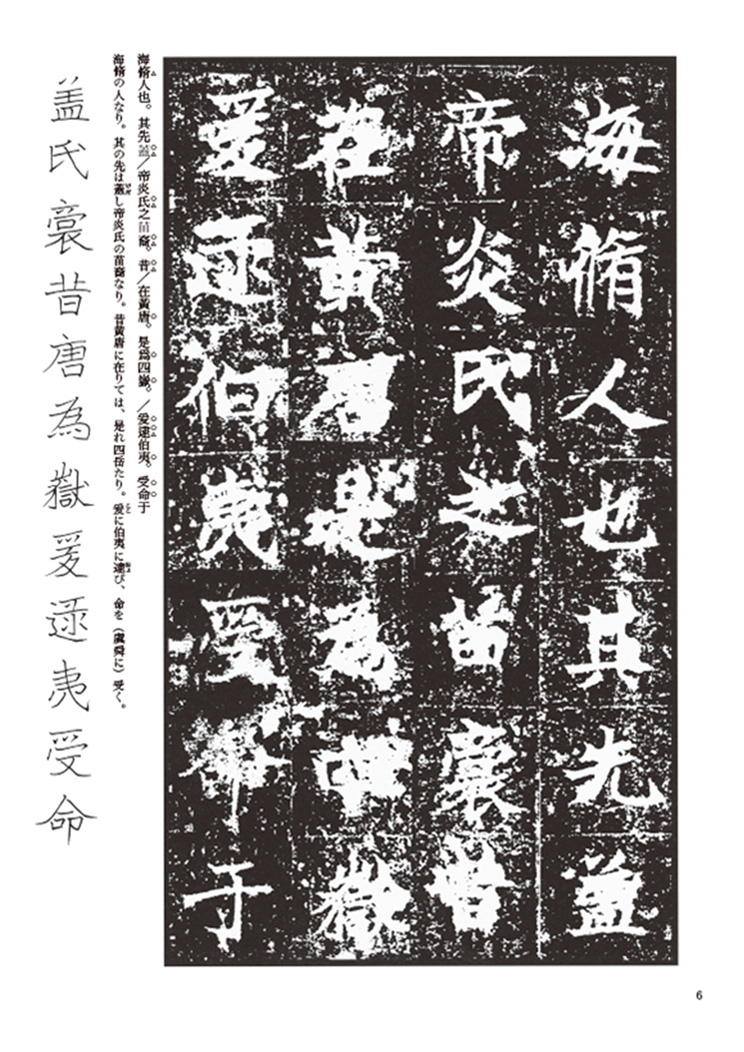 海脩人也其先盖
帝炎氏之苗裔昔
在黄唐是為四嶽
爰逯伯夷受命于
海脩人也。其先蓋／帝炎氏之苗裔。昔／在黃唐。是爲四嶽。／爰逯伯夷。受命于
海脩の人なり。其の先は蓋し帝炎氏の苗裔なり。昔黄唐に在りては、是れ四岳たり。爰に伯夷に逯び、命を（虞舜に）受く。
盖氏裔昔唐為嶽爰逯夷受命
6